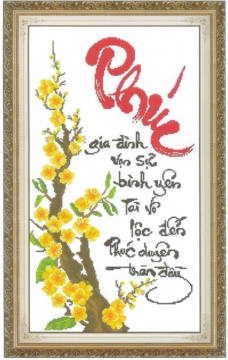 Phúc
gia đình
vạn sự
bình yên
Tài vô
lộc đến
Phúc duyên
tràn đầy